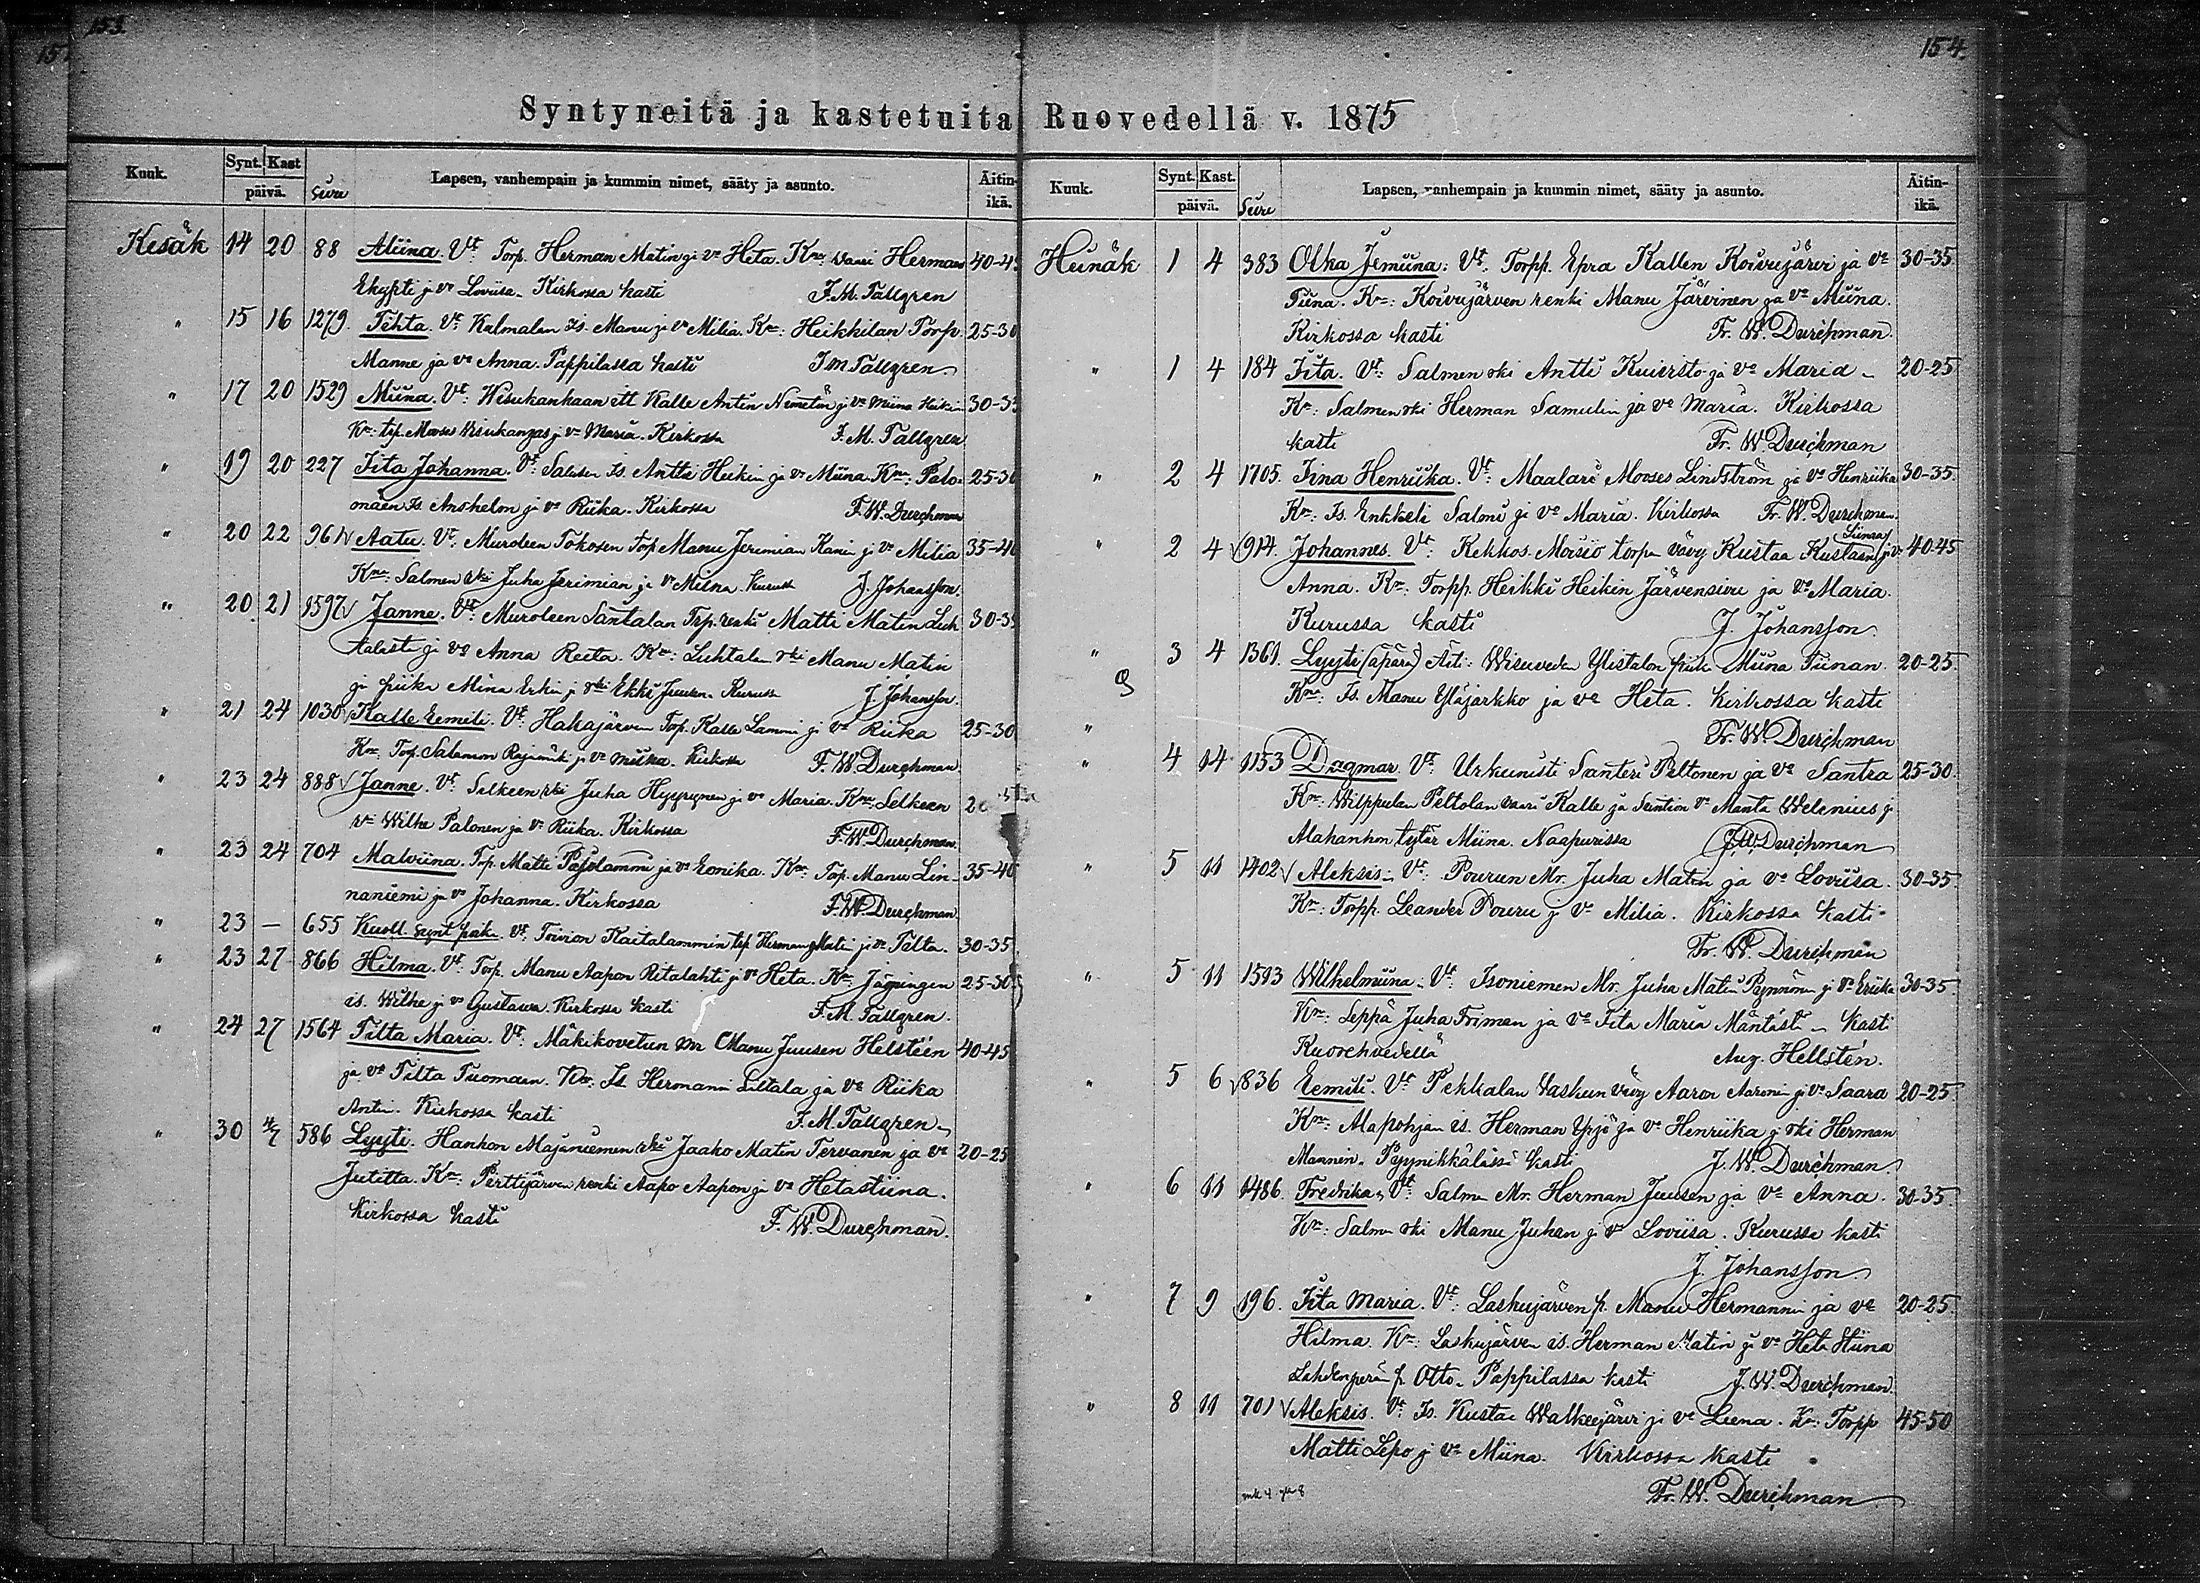 153.
154.
Syntyneitä ja kastetuita Ruovedellä v. 1875
Kuuk. Synt. Kast. päivä. Sivu Lapsen, vanhempain ja kummin nimet, sääty ja asunto. Äitin-ikä.
Kesäk 14 20 88 Aliina. Vt Torp. Herman Matin ja vo Heta. Kmt: Herman 40-45
j vo Loviisa. Kirkossa kasti F. M. Tallgren
" 15 16 1279 Tekta. Vt: Kalmalan Is. Manu ja vo Milia. Km: Heikkilän Torp. 25-30
Manne ja vo Anna. Pappilassa kasti F M Tallgren
" 17 20 1529 Miina. Vt: Wisukankaan itt Kalle Antin j vo Miina Heikin 30-35
Km: trp. Moses Wisukangas j vo Maria. Kirkossa F. M. Tallgren
" 19 20 227 Iita Johanna. Vt: Is. Antti Heikin ja vo Miina. Km: Palo- 25-30
mäen Is. Anshelm ja vo Riika. Kirkossa F. W. Durchman
" 20 22 961 Aatu. Vt: Muroleen Torp Manu Jerimian j vo Milia 35-40
Km: Salmen rki Juha Jerimian ja vo Miina. Kurussa J. Johansson.
" 20 21 1597 Janne. Vt: Muroleen Santalan Trp. renki Matti Matin Leh 30-35
talasti ja vo Anna Reeta. Km: Luhtalan rki Manu Matin
ja piika Miina Erkin j rki Erkki Juusen. Kurussa J. Johansson.
" 21 24 1030 Kalle Eemili. Vt. Hakajärven Torp. Kalle Lammi ja vo Riika 25-30
Km: Torp. Salamon Rajamäki j vo Miina. Kirkossa F. W. Durchman.
" 23 24 888 Janne. Vt: Selkeen rki Juha Hyyrynen j vo Maria. Km: Selkeen
Wilhe Palonen ja vo Riika. Kirkossa F. W. Durchman.
" 23 24 704 Malviina. Trp. Matti Pajulammi ja vo Eonika. Km: Torp. Manu Lin- 35-40
naniemi ja vo Johanna. Kirkossa F. W. Durchman.
" 23 — 655 Kuoll. synt. poika. Vt: Toivion Kaitalammin trp. Herman Matin j vo Tilta. 30-35
" 23 27 866 Hilma. Vt: Torp. Manu Aapon Ritalahti j vo Heta. Km: Jämingin 25-30
is. Wilhe j vo Gustava. Kirkossa kasti F. M. Tallgren.
" 24 27 1564 Tilta Maria. Vt: Mäkikovetun Mr Manu Juusen Helstéen 40-45
ja vo Tilta Tuomaan. Km: Is. Hermanni ja vo Riika
Antin. Kirkossa kasti F. M. Tallgren
" 30 4/7 586 Lyyti. Hankon Majaniemen rki Jaako Matin Tervanen ja vo 20-25
Juditta. Km: Perttijärven renki Aapo Aapon ja vo Hetastiina.
Kirkossa kasti F. W. Durchman.
Kuuk. Synt. Kast. päivä. Sivu Lapsen, vanhempain ja kummin nimet, sääty ja asunto. Äitin-ikä.
Heinäk 1 4 383 Olka Jemiina: Vt. Torpp. Epra Kallen Koivujärvi ja vo 30-35
Tiina. Km: Koivujärven renki Manu Järvinen ja vo Miina.
Kirkossa kasti Fr. W. Durchman.
" 1 4 184 Iita. Vt: Salmen rki Antti Kuivisto ja vo Maria 20-25
Km: Salmen rki Herman Samulin ja vo Maria. Kirkossa
kasti Fr. W. Durchman
" 2 4 1705. Iina Henriika. Vt: Maalari Mooses Lindström ja vo Henriika 30-35.
Km: Is. Enkkeli Salmi ja vo Maria. Kirkossa Fr. W. Durchman.
" 2 4 914. Johannes. Vt: Kekkos. Moisio torpan vävy Kustaa Kustaan j v. 40-45
Anna. Km: Torpp. Heikki Heikin Järvensivu ja vo Maria.
Kurussa kasti J. Johansson.
" 3 4 1361. Lyyti (äpärä) Äiti: Wisuveden Ylistalon piika Miina Tiinan. 20-25
Km: Is. Manu Yläjarkko ja vo Heta. Kirkossa kasti
" Fr. W. Durchman
" 4 14 1153 Dagmar. Vt: Urkunisti Santeri Peltonen ja vo Santra 25-30.
Km: Wilppulan Peltolan vaari Kalle ja Suntion vo Manta Welenius j
Alahanhon tytär Miina. Naapurissa F. W. Durchman
" 5 11 1402 Aleksis. Vt: Pourun Mr. Juha Matin ja vo Loviisa. 30-35
Km: Torpp. Leander Pouru j vo Milia. Kirkossa kasti
Fr. W. Durchman
" 5 11 1593 Wilhelmiina. Vt: Isoniemen Mr. Juha Matin Pynnönen j vo Eriika 30-35.
Km: Leppä Juha Friman ja vo Iita Maria Mäntästä. Kasti
Ruovehvedellä Aug. Hellstén.
" 5 6 836 Eemili. Vt: Pekkalan Vaskuun vävy Aaron Aaronin ja vo Saara 20-25.
Km: Alapohjan is. Herman Yrjö ja vo Henriika j rki Herman
Mannin. Pyynikkälässä kasti F. W. Durchman
" 6 11 1486. Fredrika. Vt: Salmen Mr. Herman Juusen ja vo Anna. 30-35.
Km: Salmen rki Manu Juhan ja vo Loviisa. Kurussa kasti
J. Johansson
" 7 9 196. Iita Maria. Vt: Laskujärven p. Manu Hermannin ja vo 20-25.
Hilma. Km: Laskujärven is. Herman Matin ja vo Heta Stiina
Lahdenperän p. Otto. Pappilassa kasti F. W. Durchman.
" 8 11 701 Aleksis. Vt: Is. Kustaa Walkeejärvi ja vo Leena. Km: Torpp 45-50
Matti Lepo j vo Miina. Kirkossa kasti
Fr. W. Durchman